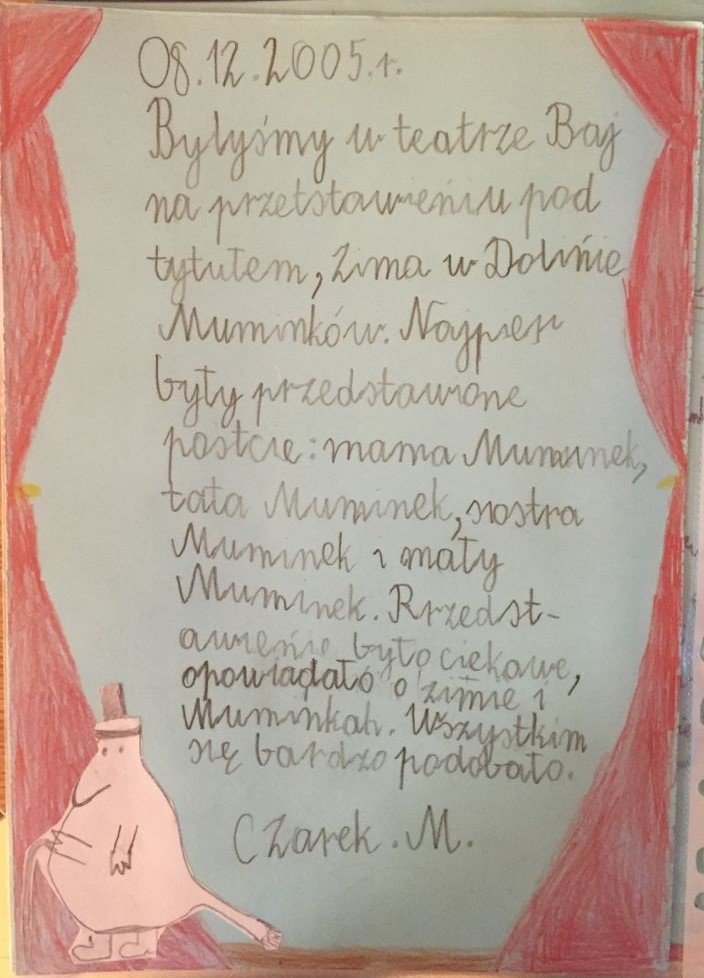 08.12.2005.r.
Byłyśmy w teatrze Baj
na przetstawieńiu pod
tytułem, Zima w Dolińie
Muminków. Najpier
były przedstawione
postcie: mama Muminek,
tata Muminek, siostra
Muminek i mały
Muminek. Przedst-
awieńie było ciekawe,
opowiadało o zimie i
Muminkah. Wszystkim
się bardzo podobało.
Czarek. M.